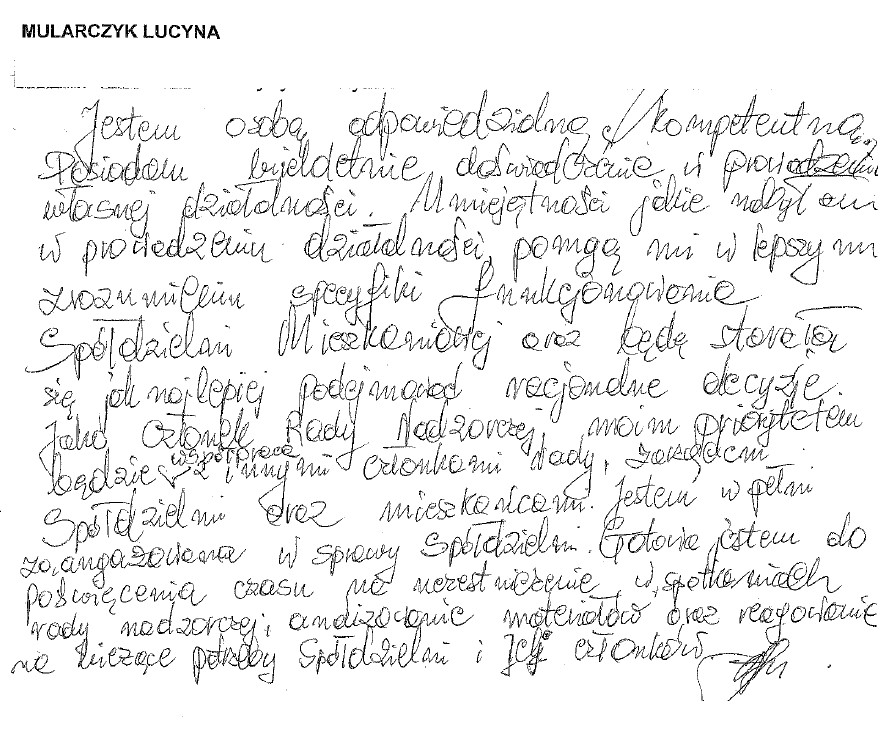 MULARCZYK LUCYNA
Jestem osobą odpowiedzialną i kompetentną.
Posiadam wieloletnie doświadczenie w prowadzeniu
własnej działalności. Umiejętności jakie nabyłam
w prowadzeniu działalności, pomgą mi w lepszym
zrozumieniu specyfiki funkcjonowania
Spółdzielni Mieszkaniowej oraz będę starała
się jak najlepiej podejmować racjonalne decyzje.
Jako członek Rady Nadzorczej, moim priorytetem
będzie współpraca z innymi członkami rady, zarządem
Spółdzielni oraz mieszkańcami. Jestem w pełni
zaangażowana w sprawy Spółdzielni. Gotowa jestem do
poświęcenia czasu na uczestniczenie w spotkaniach
rady nadzorczej, analizowanie materiałów oraz reagowanie
na bieżące potrzeby Spółdzielni i Jej członków